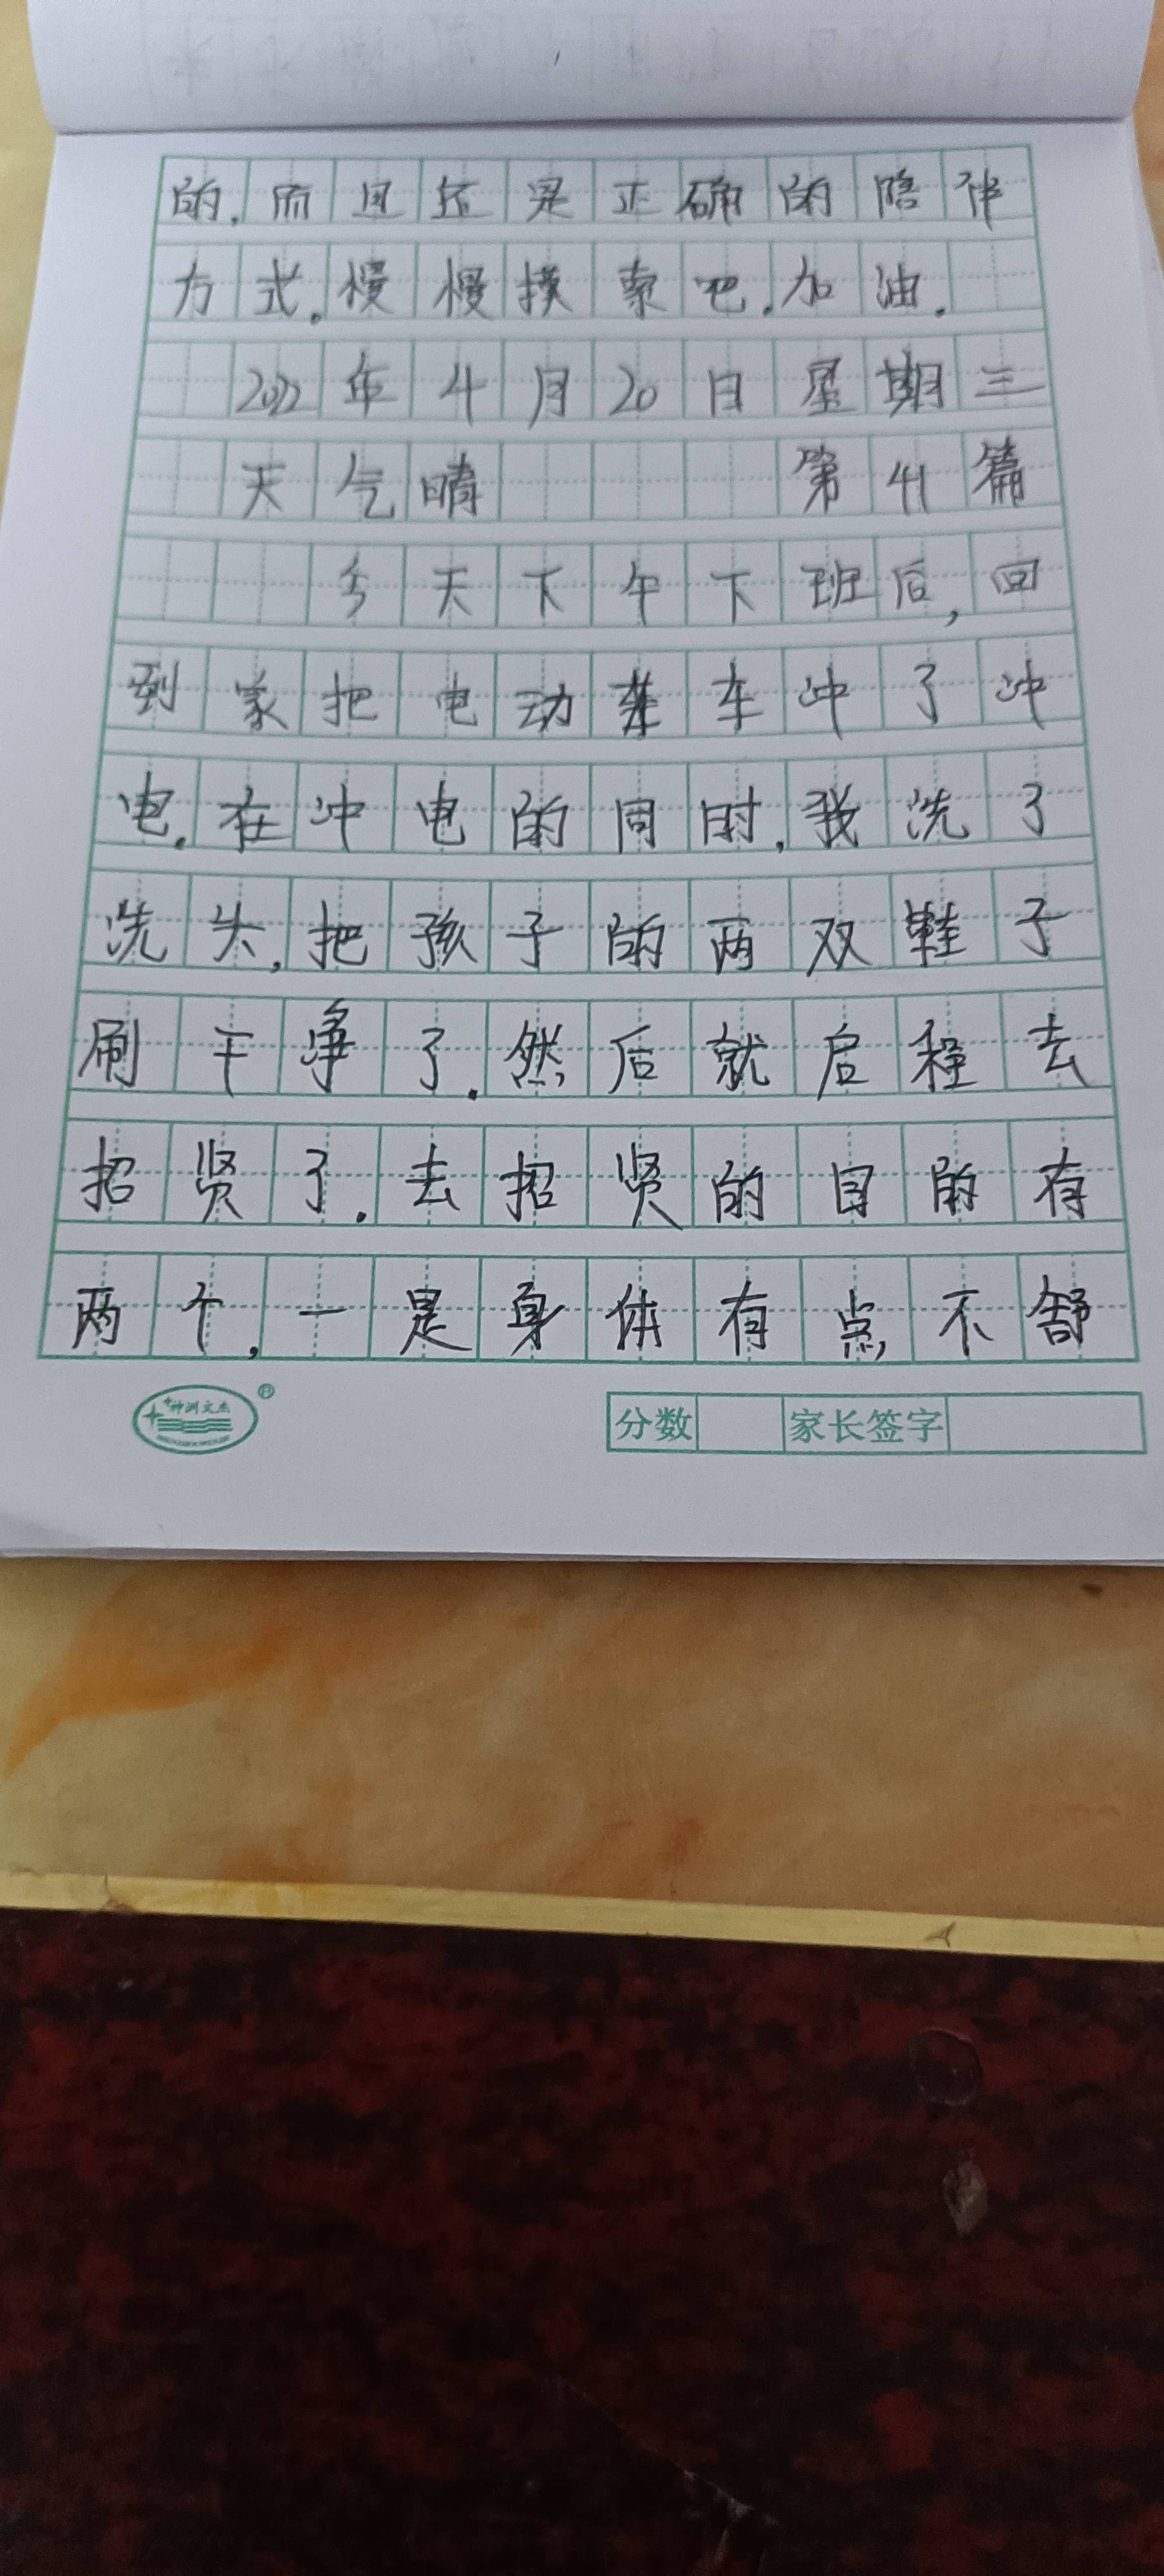 的.而且还是正确的陪伴
方式.慢慢摸索吧.加油.
2022年4月20日星期三
天气晴 第41篇
今天下午下班后,回
到家把电动车车冲了冲
电.在冲电的同时.我洗了
洗头,把孩子的两双鞋子
刷干净了.然后就启程去
招贤了.去招贤的目的有
两个,一是身体有点不舒
神洲文杰
分数 家长签字